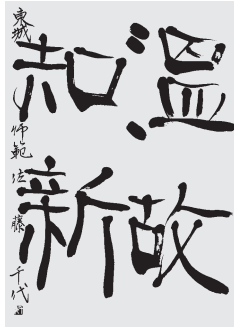 温故
知新
東城 師範 佐藤千代